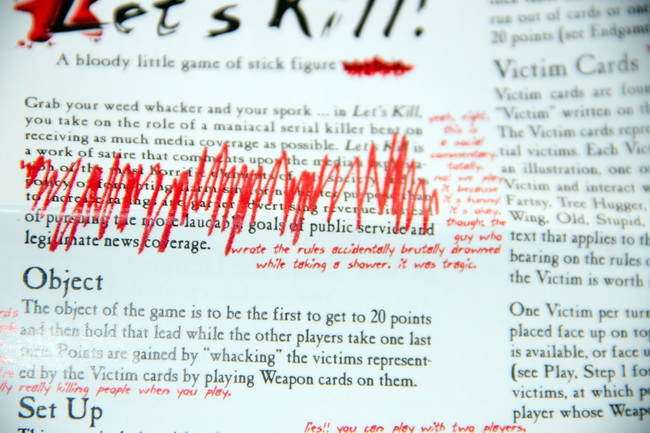 Let's Kill!
A bloody little game of stick figure
Grab your weed whacker and your spork ... in Let's Kill,
you take on the role of a maniacal serial killer bent on
receiving as much media coverage as possible. Let's Kill is
a work of satire that comments upon the media's
to increase ratings and garner advertising revenue, instead
of pursuing the more laudable goals of public service and
legitimate news coverage.
yeah, right.
this is
a social
commentary.
totally.
not we play
it because
it's funny.
it's okay,
though, the
guy who
wrote the rules accidentally brutally drowned
while taking a shower. it was tragic.
Object
The object of the game is to be the first to get to 20 points
and then hold that lead while the other players take one last
turn. Points are gained by "whacking" the victims represent-
ed by the Victim cards by playing Weapon cards on them.
really killing people when you play.
Set Up
Yes!! you can play with two players.
run out of cards or one
20 points (see Endgame
Victim Cards
Victim cards are
"Victim" written on
The Victim cards
tial victims. Each
an illustration, one
Victim and interact
Fartsy, Tree Hugger,
Wing, Old, Stupid,
text that applies to
bearing on the rules
the Victim is worth
One Victim per turn
placed face up on top
is available, or face
(see Play, Step 1
victims, at which
player whose